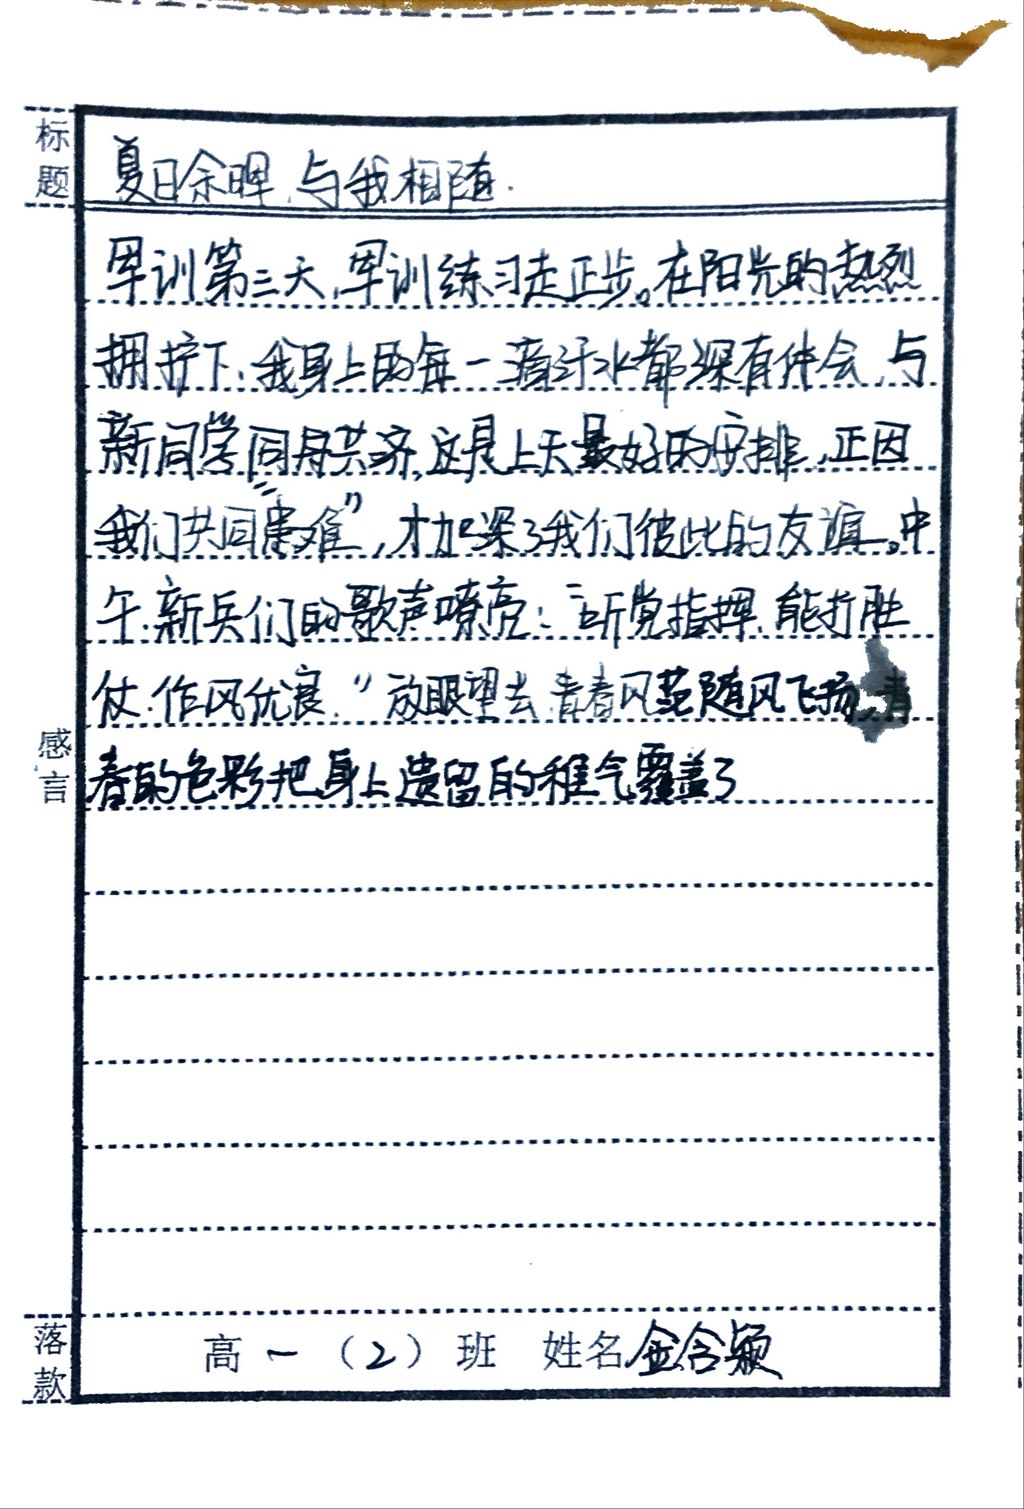 标题
夏日余晖,与我相随.
军训第三天,军训练习走正步。在阳光的热烈
拥护下,我身上的每一滴汗水都深有体会,与
新同学同舟共济,这是上天最好的安排,正因
我们共同“患难”,才加深了我们彼此的友谊。中
午,新兵们的歌声嘹亮:“听党指挥,能打胜
仗,作风优良”放眼望去,青春风范随风飞扬,青
春的色彩把身上遗留的稚气覆盖了
感言
落款
高一(2)班 姓名金含颖